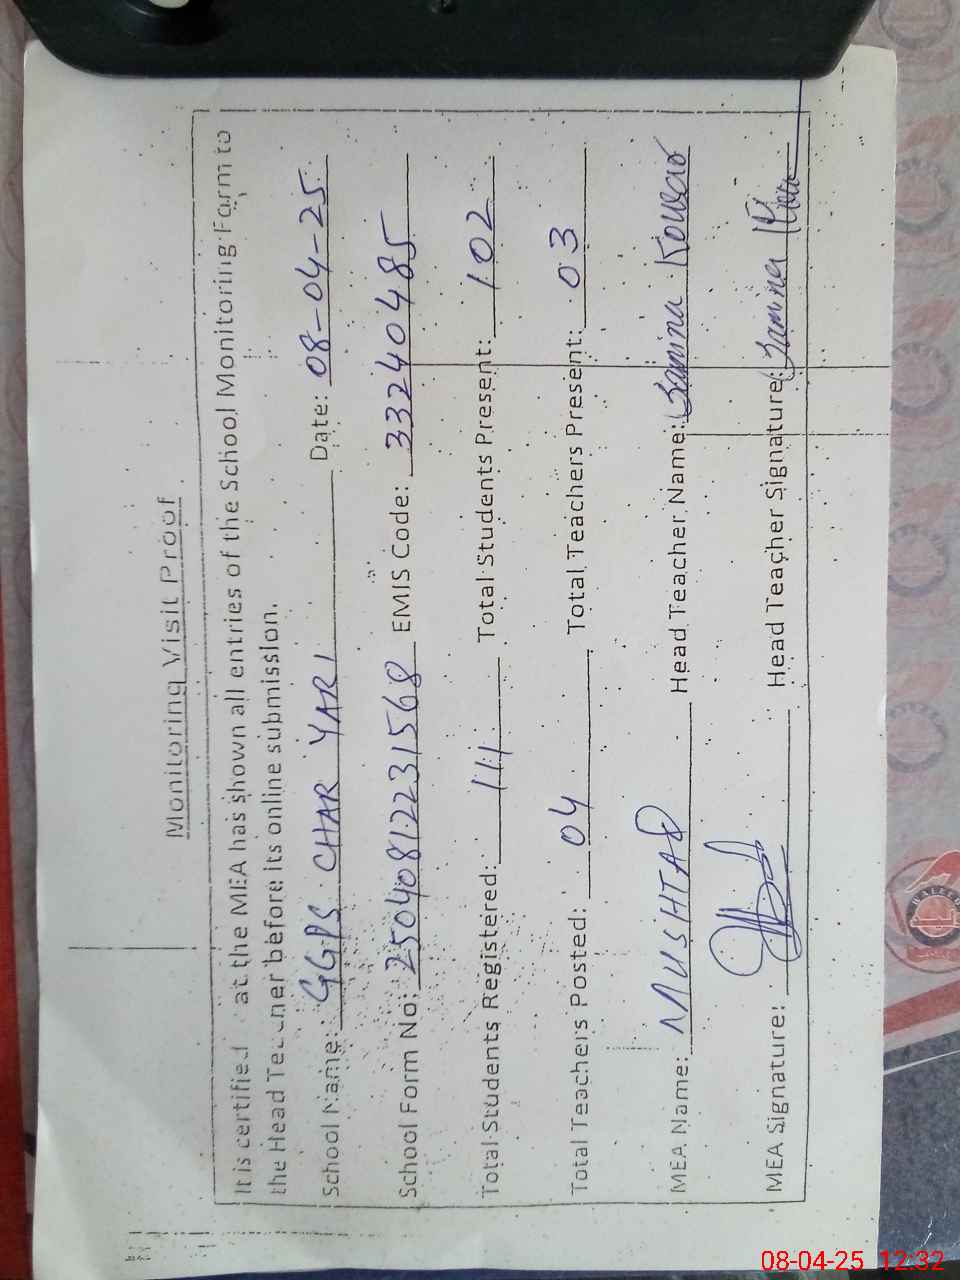 Monitoring Visit Proof
It is certified at the MEA has shown all entries of the School Monitoring Form to
the Head Teacher before its online submission.
School Name: GGPS CHAR YARI Date: 08-04-25
School Form No: 25040812231568 EMIS Code: 33240485
Total Students Registered: 111 Total Students Present: 102
Total Teachers Posted: 04 Total Teachers Present: 03
MEA Name: MUSHTAQ Head Teacher Name: Samina Kousar
MEA Signature: Head Teacher Signature: Samina
08-04-25 12:32